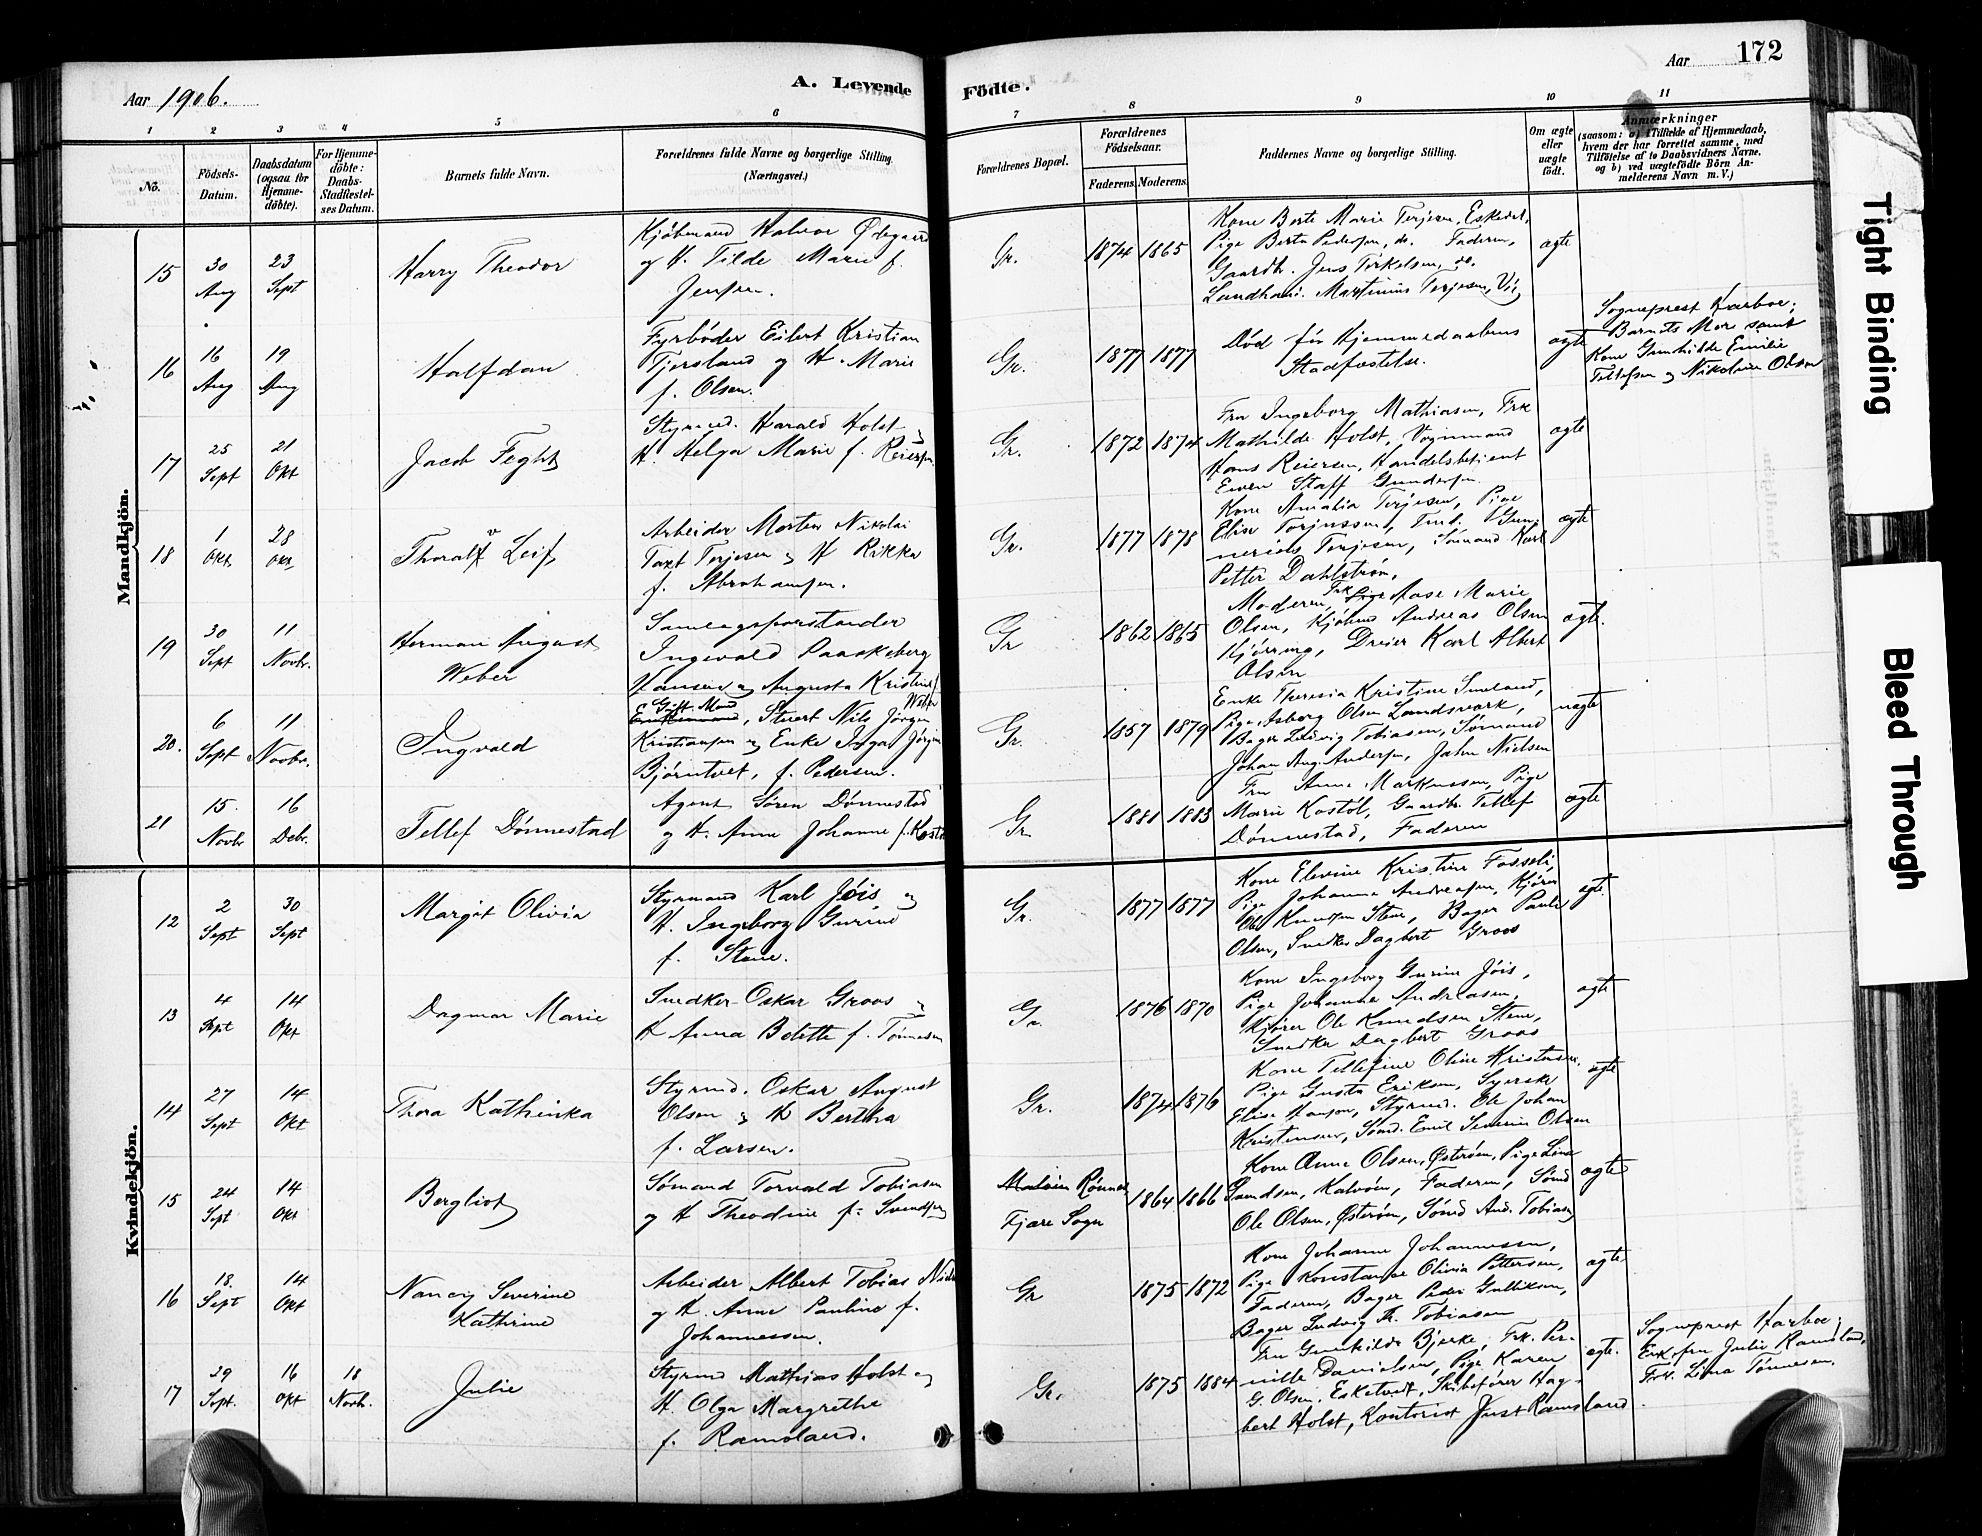 Aar 1906.
A. Levende
Födte.
Aar
172
1 2 3 4 5 6 7 8 9 10 11
No.
Födsels-
Datum.
Daabsdatum
(ogsaa for
Hjemme-
döbte).
For Hjemme-
döbte:
Daabs-
Stadfæstel-
ses Datum.
Barnets fulde Navn.
Forældrenes fulde Navne og borgerlige Stilling.
(Næringsvei.)
Forældrenes Bopæl.
Forældrenes
Födselsaar.
Faderens. Moderens.
Faddernes Navne og borgerlige Stilling.
Om ægte
eller
uægte
födt.
Anmærkninger
(saasom: a) i Tilfælde af Hjemmedaab,
hvem der har forrettet samme, med
Tilföielse af to Daabsvidners Navne,
og b) ved uægtefödte Börn An-
melderens Navn m. V.)
Mandkjön.
15
30
Aug
23
Sept
Harry Theodor
Kjøbmand Halvor Ødegaard
og H. Tilde Marie f.
Jensen.
Gr.
1874 1865
Kone Berte Marie Terjesen, Eskedal,
Pige Berta Pedersen, do. Faderen,
Gaardb. Jens Terkelsen, do.
Landhand. Martinius Terjesen, Vig
ægte
16
16
Aug
19
Aug
Halfdan
Fyrbøder Eilert Kristian
Tjersland og H. Marie
f. Olsen.
Gr.
1877 1877
Død før Hjemmedaabens
Stadfæstelse.
ægte
Sogneprest Harboe;
Barnets Mor samt
Kone Gunhilde Emilie
Tellefsen og Nikoline Olsen
17
25
Sept
21
Okt
Jacob Feght
Styrmd. Harald Holst og
H. Helga Marie f. Reiersen
Gr.
1872 1874
Fru Ingeborg Mathiasen, Frk
Mathilde Holst, Vognmand
Hans Reiersen, Handelsbetjent
Even Staff Gundersen
ægte
18
1
Okt.
28
Okt.
Thoralv Leif
Arbeider Morten Nikolai
Taxt Terjesen og H Rikka
f. Abrahamsen.
Gr.
1877 1878
Kone Amalia Terjesen, Pige
Elise Torjussen, Tmd. Gun-
nerius Terjesen, Sømand Karl
Petter Dahlstrøm,
ægte
19
30
Sept
11
Novbr.
Herman August
Weber
Samlagsforstander
Ingevald Paaskeberg
Hansen og Augusta Kristine f.
Weber
Gr
1862 1865
Moderen, Frk Aase Marie
Olsen, Kjøbmd Andreas Olsen
Hjørring, Dreier Karl Albert
Olsen
ægte.
20.
6
Sept
11
Novbr.
Ingvald
Gift Mand
Stuert Nils Jørgen
Kristiansen og Enke Inga Jørgine
Bjørntvet, f. Pedersen.
Gr.
1857 1879
Enke Theresia Kristine Smeland,
Pige Asborg Olsen Landsverk,
Bager Ludvig Tobiasen, Sømand
Johan Aug. Andersen, Jahn Nielsen
uægte
21
15.
Novbr
16
Debr.
Tellef Dønnestad
Agent Søren Dønnestad
og H. Anne Johanne f. Kostøl
Gr.
1881 1883
Fru Anna Markussen, Pige
Marie Kostøl, Gaardbr. Tellef
Dønnestad, Faderen
ægte
Kvindekjön.
12
2
Sept
30
Sept
Margit Olivia
Styrmand Karl Jøis og
H. Ingeborg Gurine
f. Stene.
Gr.
1877 1877
Kone Elevine Kristine Fosseli,
Pige Johanna Andreasen, Kjører
Ole Knudsen Stene, Bager Paul
Olsen, Snedker Dagbert Groos
ægte.
13
4
Sept
14
Okt
Dagmar Marie
Snedker Oskar Groos og
H Anna Botette f. Tønnesen
Gr.
1876 1870
Kone Ingeborg Gurine Jøis,
Pige Johanna Andreasen,
Kjører Ole Knudsen Stene,
Snedker Dagbert Groos
ægte
14
27
Sept
14
Okt
Thora Kathinka
Styrmd. Oskar August
Olsen og H Bertha
f. Larsen.
Gr.
1874 1876
Kone Tellefine Oline Kristensen,
Pige Gusta Eriksen, Syerske
Elise Hansen, Styrmd. Ole Johan
Kristensen, Sømd. Emil Severin Olsen
ægte
15
24
Sept
14
Okt
Bergliot
Sømand Torvald Tobiasen
og H Theodine f. Svendsen
Rønnes
Fjære Sogn
1864 1866
Kone Anne Olsen, Østerøen, Pige Lina
Gundsen, Kalvøen, Faderen, Sømd
Ole Olsen, Østerøen, Sømd And. Tobiasen
ægte
16
18.
Sept
14
Okt
Nancy Severine
Kathrine
Arbeider Albert Tobias
og H. Anne Pauline f.
Johannessen.
Gr
1875 1872
Kone Johanne Johannessen,
Pige Konstanse Olivia Pettersen,
Faderen, Bager Peder Gulliksen,
Bager Ludvig Th. Tobiassen
ægte
17
29
Sept.
16
Okt
18
Novb.
Julie
Styrmd Mathias Holst og
H. Olga Margrethe
f. Ramsland.
Gr.
1875 1884
Fru Gunhilde Bjerke, Frk. Per-
nille Danielsen, Pige Karen
G. Olsen, Esketvedt, Skibsfører Hag-
bert Holst, Kontorist Just Ramsland
ægte.
Sogneprest Harboe;
Enkefru Julie Ramsland,
Frk. Lina Tønnesen.
Tight Binding
Bleed Through